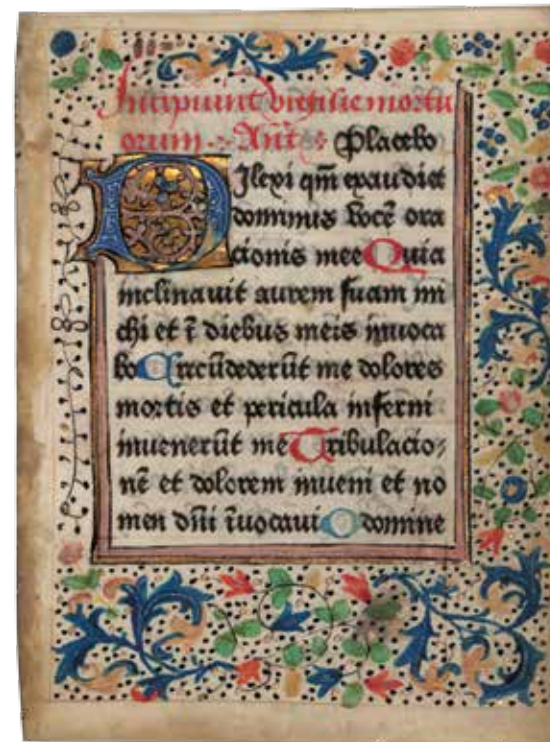 Incipiunt vigilie mortu
orum. Ant. Placebo
Dilexi qm̄ exaudiet
dominus vocē ora
cionis mee Quia
inclinauit aurem suam mi
chi et ī diebus meis inuoca
bo Circūdederūt me dolores
mortis et pericula inferni
inuenerūt me Tribulacio⸗
nē et dolorem inueni et no
men dn̄i īuocaui O domine